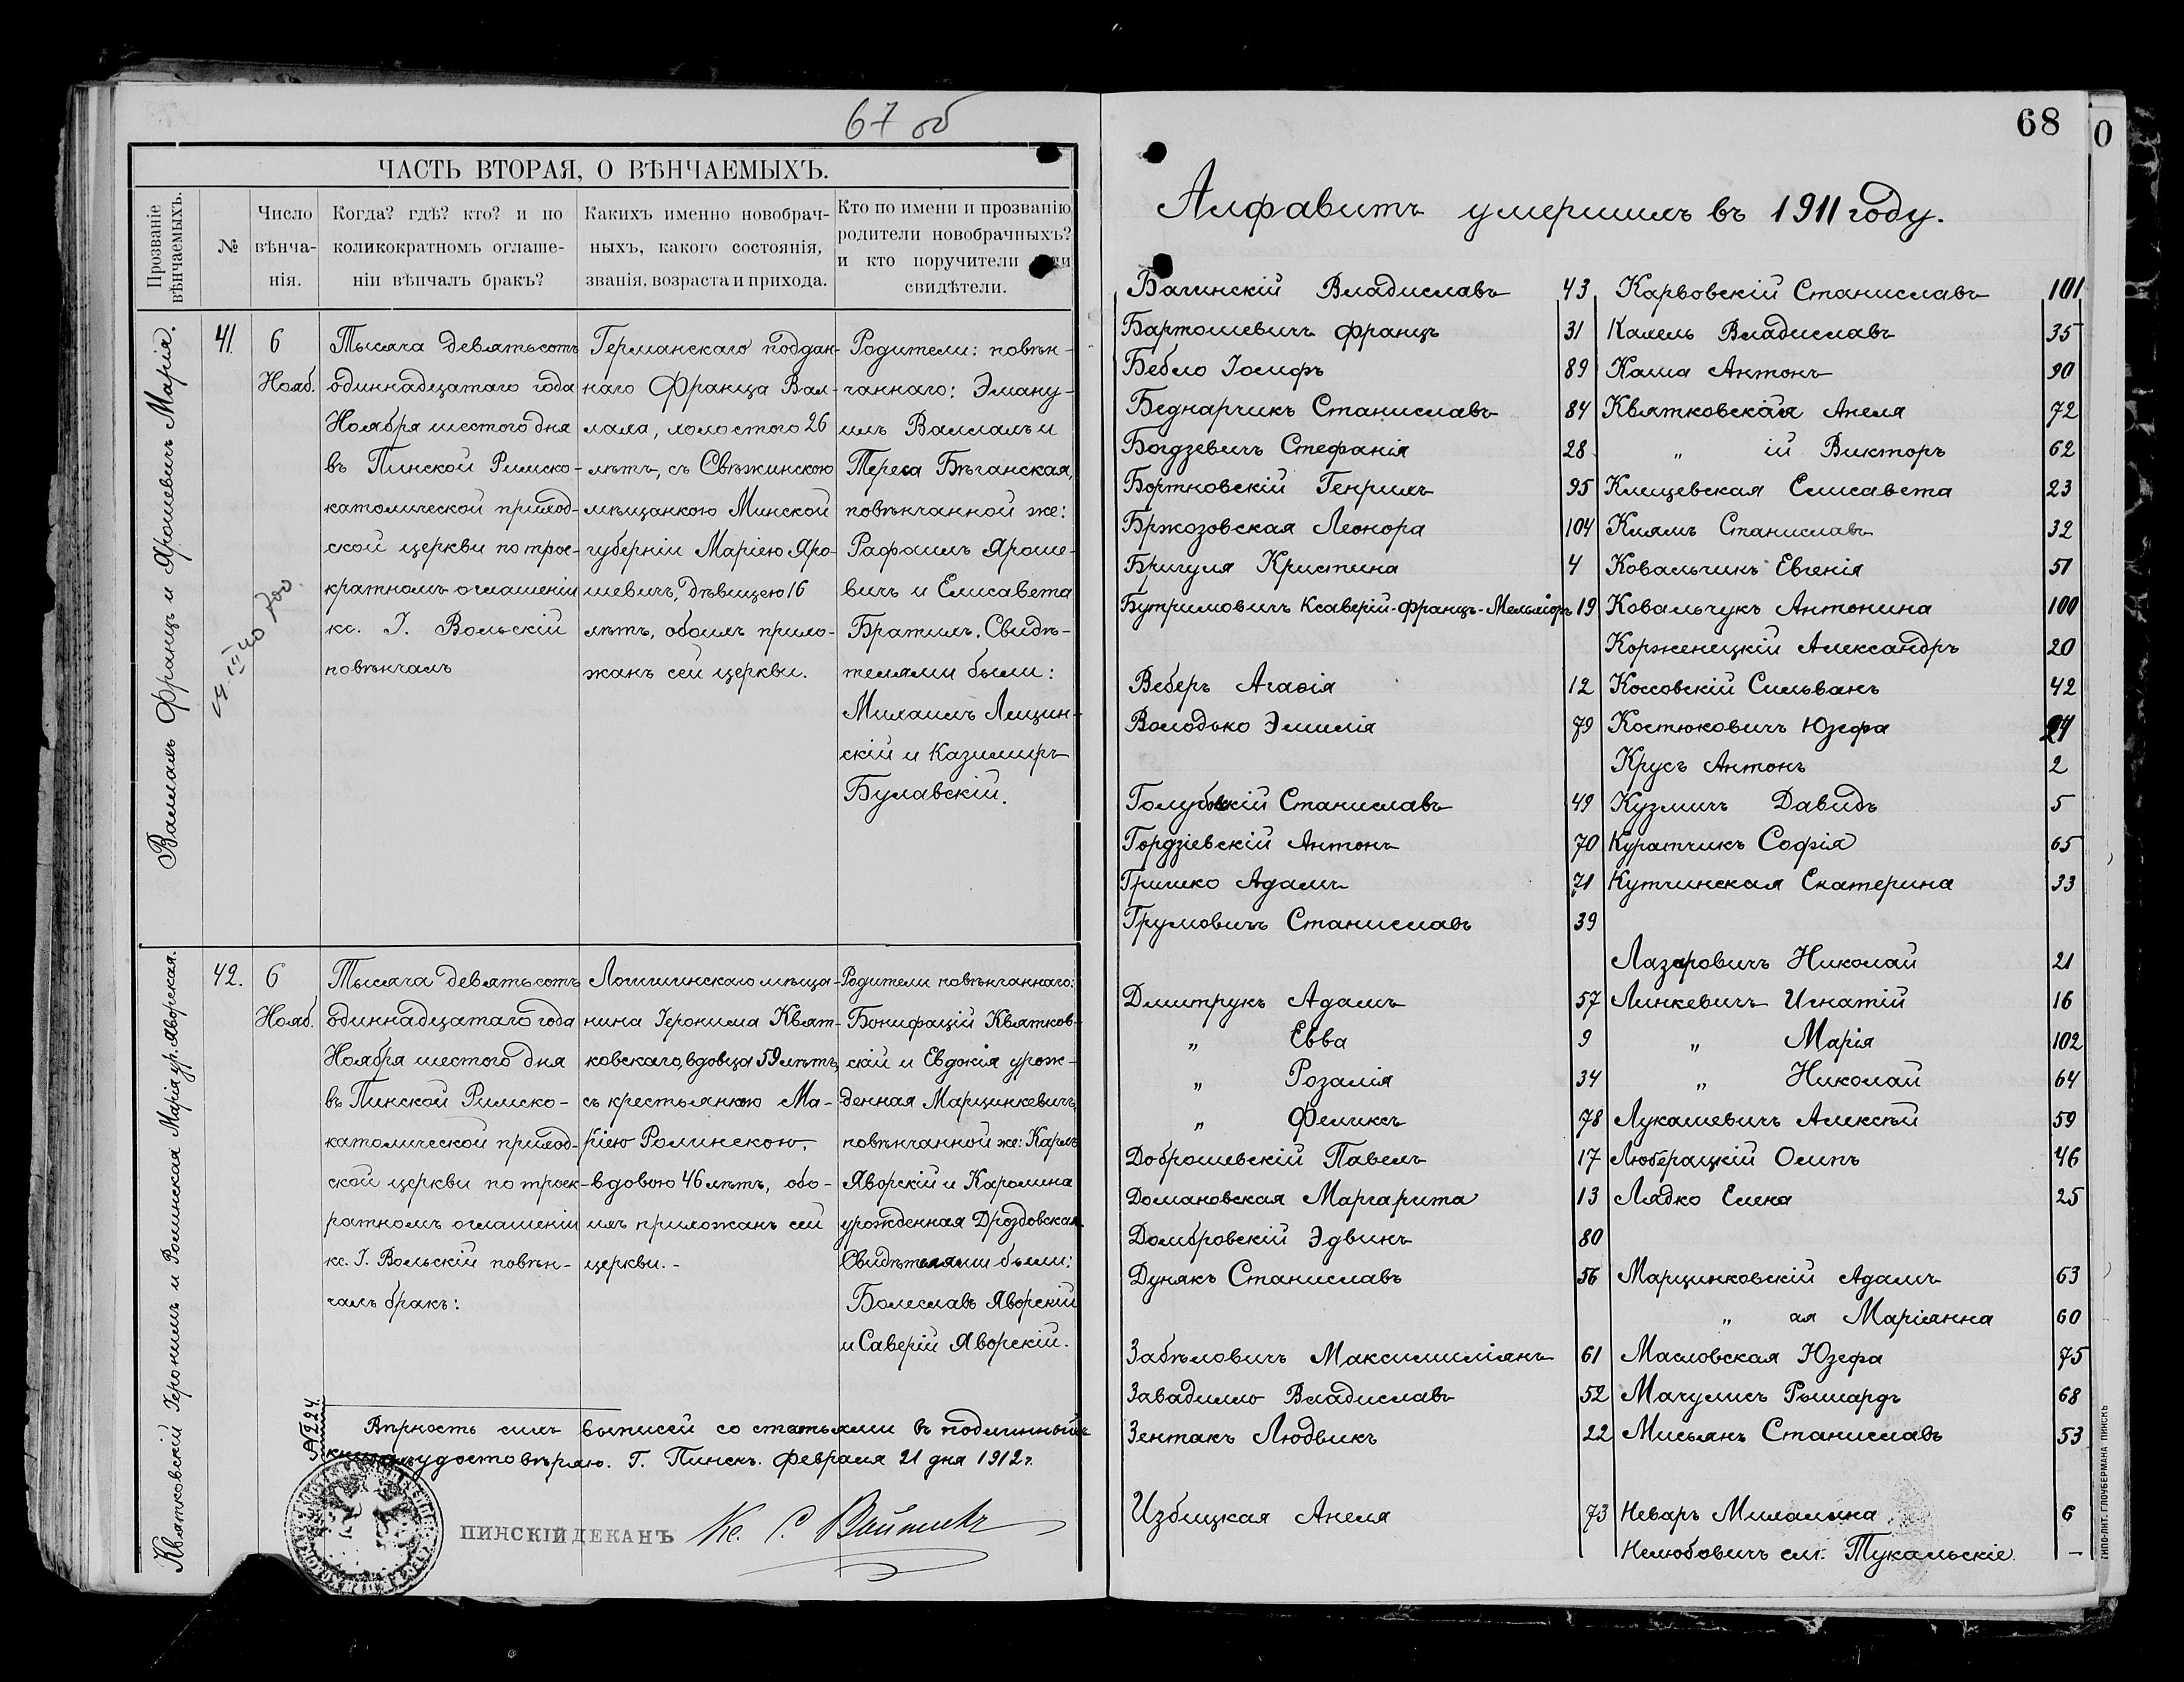 67 об
ЧАСТЬ ВТОРАЯ, О ВѢНЧАЕМЫХЪ.
Прозваніе вѣнчаемыхъ.
№
Число вѣнча-нія.
Когда? гдѣ? кто? и по
коликократномъ оглаше-
ніи вѣнчалъ бракъ?
Какихъ именно новобрач-
ныхъ, какого состоянія,
званія, возраста и прихода.
Кто по имени и прозванію
родители новобрачныхъ?
и кто поручители
свидѣтели.
Валлахъ Францъ и Ярошевичъ Марія.
41.
6
Нояб.
Тысяча девятьсотъ
одиннадцатаго года
Ноября шестого дня
въ Пинской Римско-
католической приход-
ской церкви по трое-
кратномъ оглашеніи
кс. І. Вольскій
повѣнчалъ
Германскаго поддан-
наго Франца Вал-
лаха, холостого 26
лѣтъ, съ Свѣжинскою
мѣщанкою Минской
губерніи Маріею Яро-
шевичъ, дѣвицею 16
лѣтъ, обоихъ прихо-
жанъ сей церкви.
Родители: повѣн-
чаннаго: Эману-
илъ Валлахъ и
Тереса Бѣганская,
повѣнчанной же:
Рафаилъ Яроше-
вичъ и Елисавета
Братихъ. Свидѣ-
телями были:
Михаилъ Лещин-
скій и Казимиръ
Булавскій.
Квятковскій Іеронимъ и Ролинская Марія ур. Яворская.
42.
6
Нояб.
Тысяча девятьсотъ
одиннадцатаго года
Ноября шестого дня
въ Пинской Римско-
католической приход-
ской церкви по троек-
ратномъ оглашеніи
кс. І. Вольскій повѣн-
чалъ бракъ:
Логишинскаго мѣща-
нина Іеронима Квят-
ковскаго, вдовца 59 лѣтъ,
съ крестьянкою Ма-
ріею Ролинскою,
вдовою 46 лѣтъ, обо-
ихъ прихожанъ сей
церкви.-
Родители повѣнчаннаго:
Бонифацій Квятков-
скій и Евдокія урож-
денная Марцинкевичъ,
повѣнчанной же: Карлъ
Яворскій и Каролина
урожденная Дроздовская.
Свидѣтелями были:
Болеславъ Яворскій
и Саверій Яворскій.
№ 224.
Вѣрность сихъ выписей со статьями въ подлинныхъ
книгахъ удостовѣряю. Г. Пинскъ. Февраля 21 дня 1912 г.
ПИНСКІЙ ДЕКАНЪ
68
0
Алфавитъ умершихъ въ 1911 году.
Багинскій Владиславъ 43
Бартошевичъ Францъ 31
Бебло Іосифъ 89
Беднарчикъ Станиславъ 84
Богдзевичъ Стефанія 28
Бортновскій Генрихъ 95
Бржозовская Леонора 104
Бригуля Христина 4
Бутримовичъ Ксаверій-Францъ-Мельхіоръ 19
Веберъ Агаѳія 12
Володько Эмилія 79
Голубовскій Станиславъ 49
Гордзіевскій Антонъ 70
Гришко Адамъ 71
Грумовичъ Станиславъ 39
Дмитрукъ Адамъ 57
„ Евва 9
„ Розалія 34
„ Феликсъ 78
Доброшевскій Павелъ 17
Домановская Маргарита 13
Домбровскій Эдвинъ 80
Дунякъ Станиславъ 56
Забѣловичъ Максимиліанъ 61
Завадилло Владиславъ 52
Зентакъ Людвикъ 22
Избицкая Анеля 73
Карвовскій Станиславъ 101
Калель Владиславъ 35
Каша Антонъ 90
Квятковская Анеля 72
„ ій Викторъ 62
Клищевская Елисавета 23
Клямъ Станиславъ 32
Ковальчикъ Евгенія 51
Ковальчукъ Антонина 100
Корженецкій Александръ 20
Коссовскій Сильванъ 42
Костюковичъ Юзефа
Крусъ Антонъ 2
Кузмичъ Давидъ 5
Куратчикъ Софія 65
Кутчинская Екатерина 33
Лазаровичъ Николай 21
Линкевичъ Игнатій 16
„ Марія 102
„ Николай 64
Лукашевичъ Алексѣй 59
Люберацкій Осипъ 46
Лядко Елена 25
Марцинковскій Адамъ 63
„ ая Маріанна 60
Масловская Юзефа 75
Мачулисъ Рышардъ 68
Мисьянъ Станиславъ 53
Неваръ Михалина 6
Нелюбовичъ см. Тукальскіе. —
ТИПО-ЛИТ. ГЛОУБЕРМАНА ПИНСКЪ